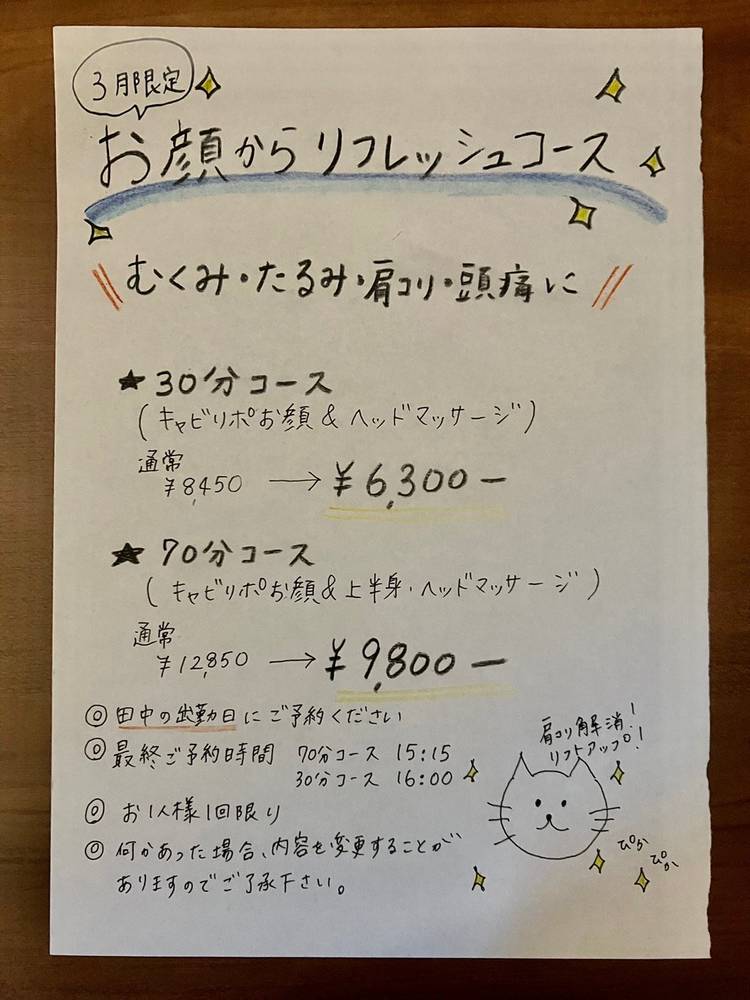 3月限定
お顔からリフレッシュコース
むくみ・たるみ・肩コリ・頭痛に
★30分コース
(キャビリポお顔&ヘッドマッサージ)
通常
¥8,450 → ¥6,300ー
★70分コース
(キャビリポお顔&上半身・ヘッドマッサージ)
通常
¥12,850 → ¥9,800ー
◎田中の出勤日にご予約ください
◎最終ご予約時間 70分コース 15:15
30分コース 16:00
◎お1人様1回限り
◎何かあった場合、内容を変更することが
ありますのでご了承下さい。
肩コリ解消!
リフトアップ!
ぴか
ぴか